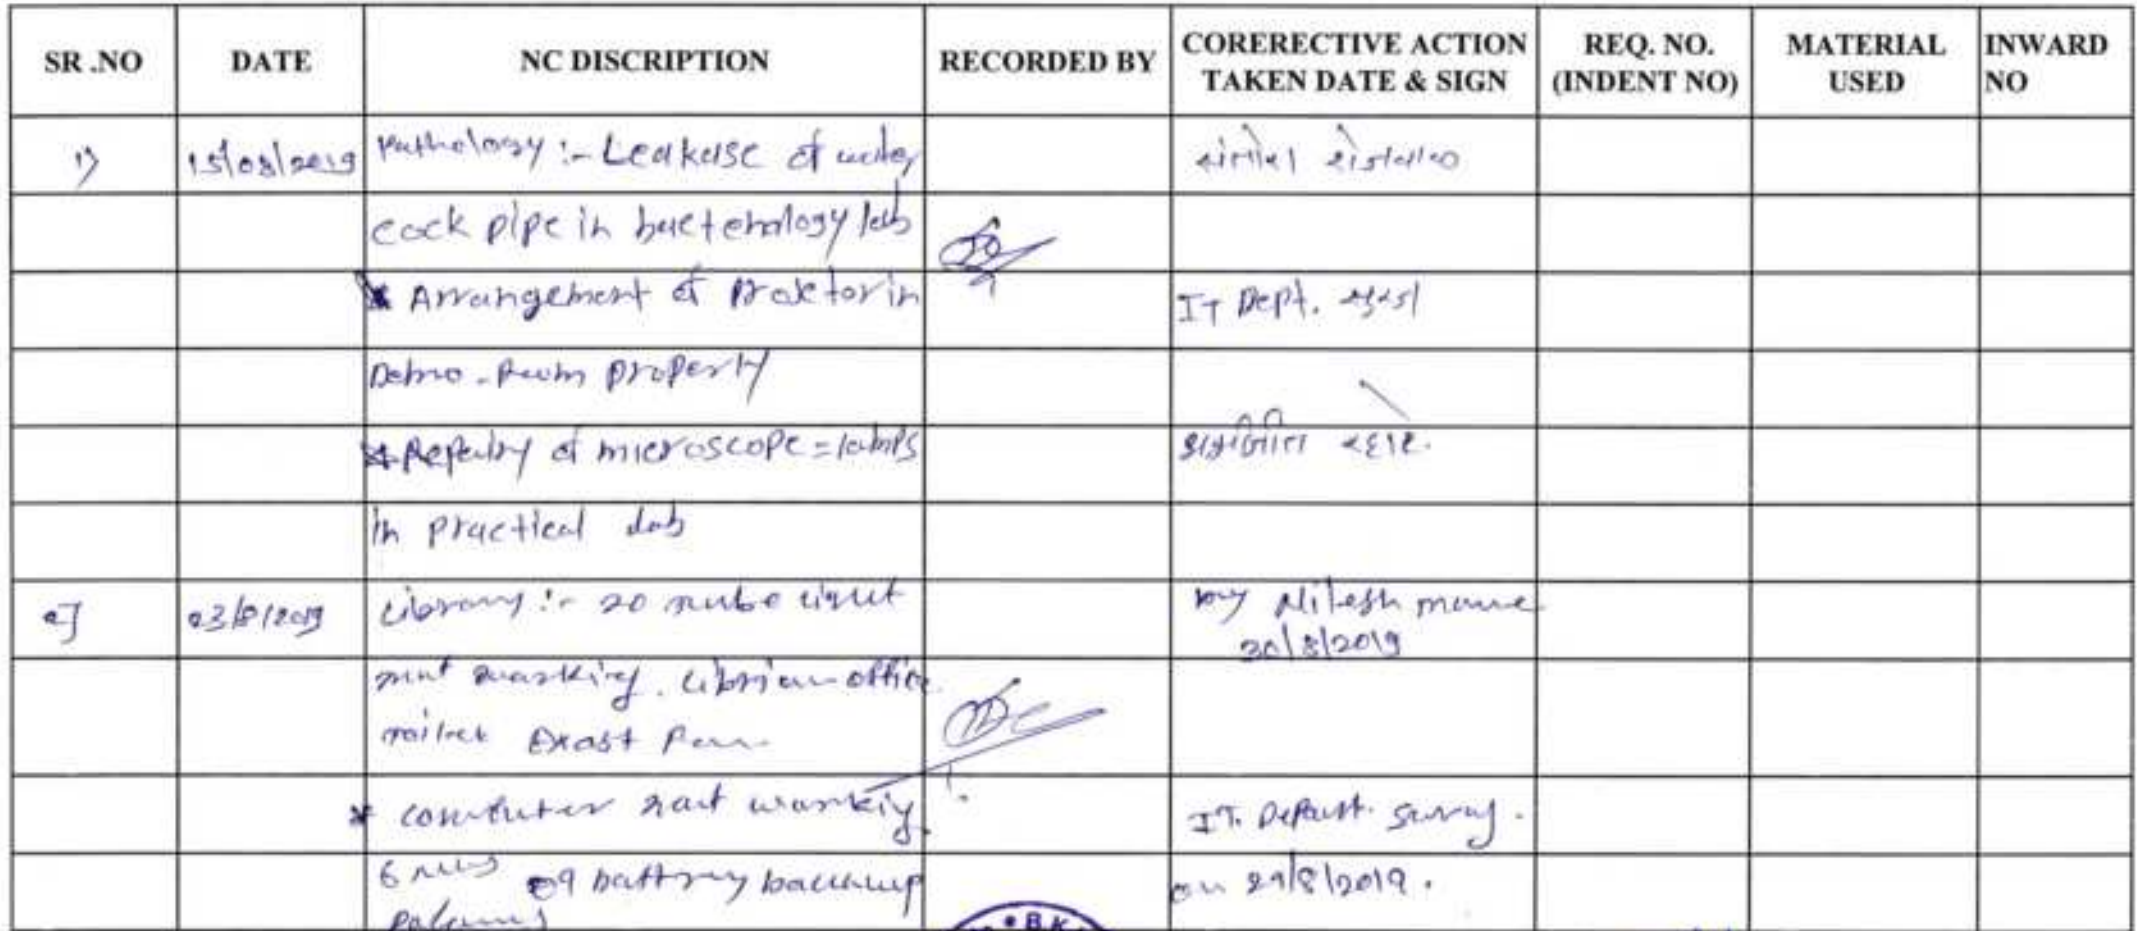 SR .NO DATE NC DISCRIPTION RECORDED BY CORERECTIVE ACTION TAKEN DATE & SIGN REQ. NO. (INDENT NO) MATERIAL USED INWARD NO
1) 15/08/2019 Pathology :- Leakage of water
cock pipe in bacteriology lab
* Arrangement of Projector in IT Dept.
Demo-Room properly
* Repairy of microscope = lamps
in practical lab
2] 23/8/2019 Library :- 20 tube light by Nilesh mane
30/8/2019
not warking. Librian office
toilet Exast Fan
* computer not warkig IT. Depart. Suraj.
6 09 battry backup on 29/8/2019.
B.K.